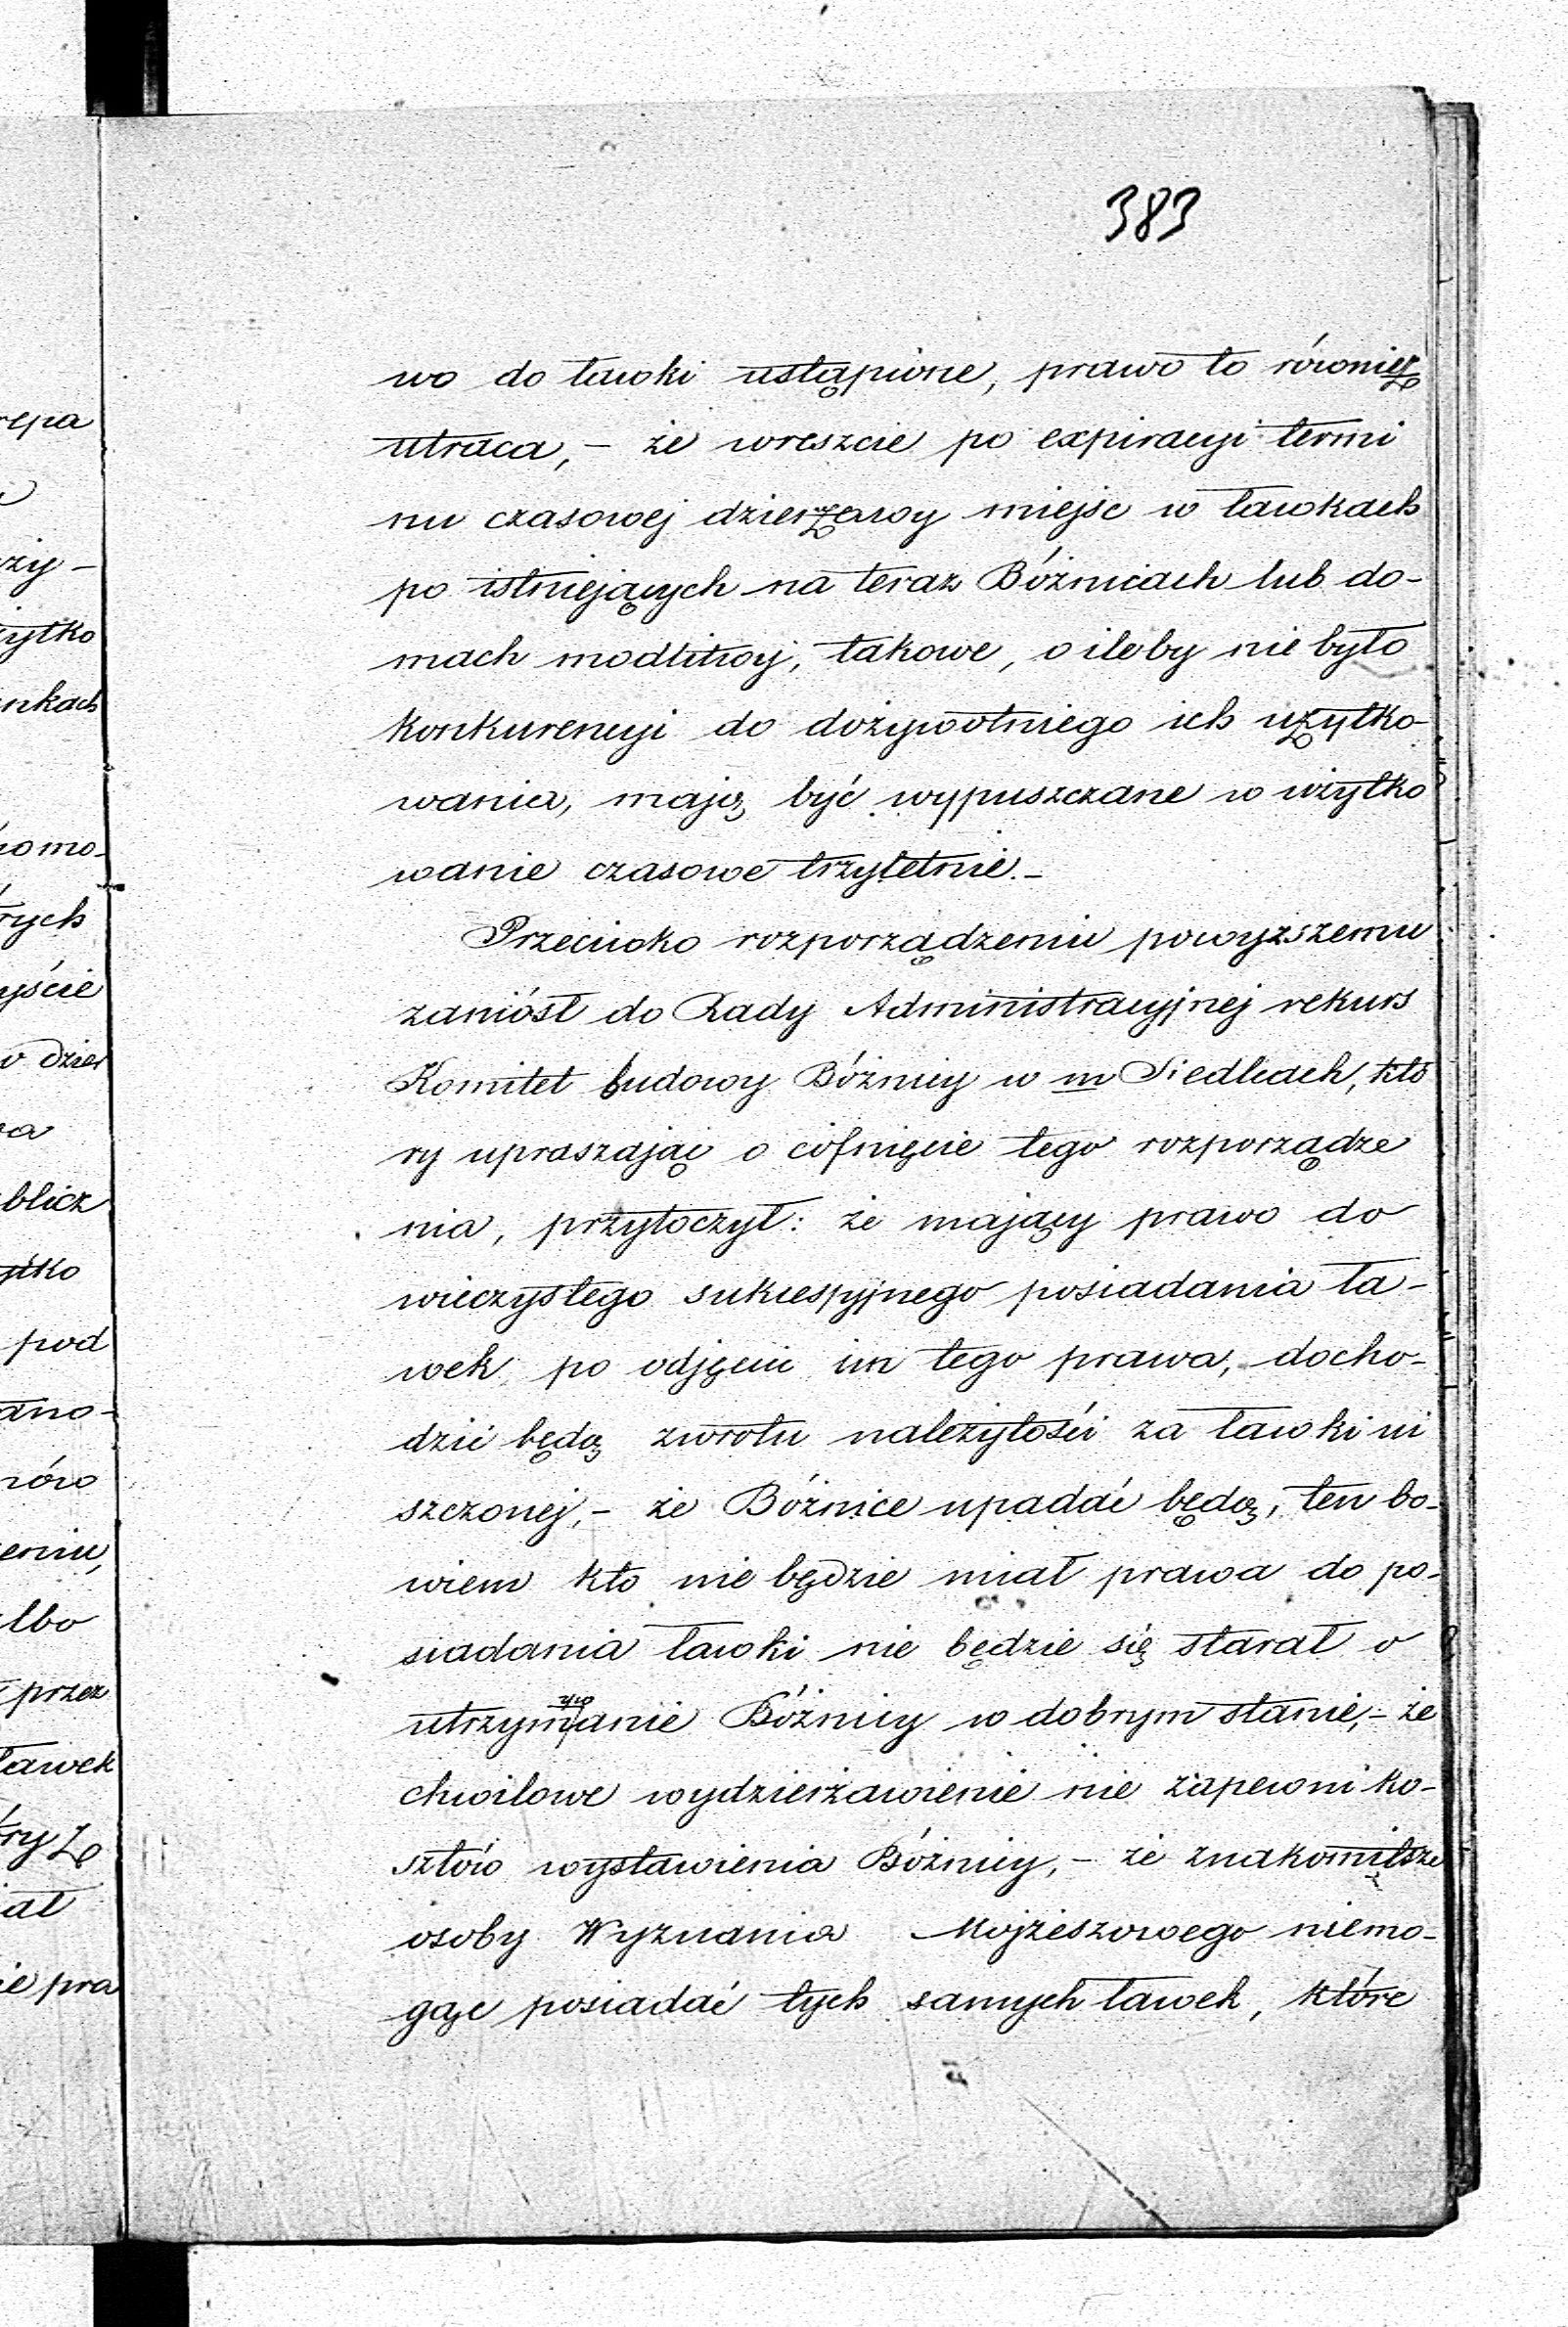 383
wo do ławki ustąpione, prawo to również
utraca, – że wreszcie po expiracyi termi
nu czasowej dzierżawy miejsc w ławkach
po istniejących na teraz Bóżnicach lub do-
mach modlitwy, takowe, o ileby nie było
konkurencyi do dożywotniego ich użytko-
wania, mają być wypuszczane w użytko
wanie czasowe trzyletnie. –
Przeciwko rozporządzeniu powyższemu
zaniósł do Rady Administracyjnej rekurs
Komitet budowy Bóżnicy w m Siedlcach, któ
ry upraszając o cofnięcie tego rozporządze
nia, przytoczył: że mający prawo do
wieczystego sukcessyjnego posiadania ła-
wek, po odjęciu im tego prawa, docho-
dzić będą zwrotu należytości za ławki ui
szczonej, – że Bóżnice upadać będą, ten bo-
wiem kto nie będzie miał prawa do po-
siadania ławki nie będzie się starał o
utrzymanie Bóżnicy w dobrym stanie, – że
chwilowe wydzierżawienie nie zapewni ko-
sztów wystawienia Bóżnicy, – że znakomitsze
osoby Wyznania Mojżeszowego niemo-
gąc posiadać tych samych ławek, które
repa
ży-
żytko
unkach
omo-
rych
yście
w dzier
wa
blicz
ytko
pod
ano-
nów
eniu,
albo
przez
ławek
ry że
ał
ie pra